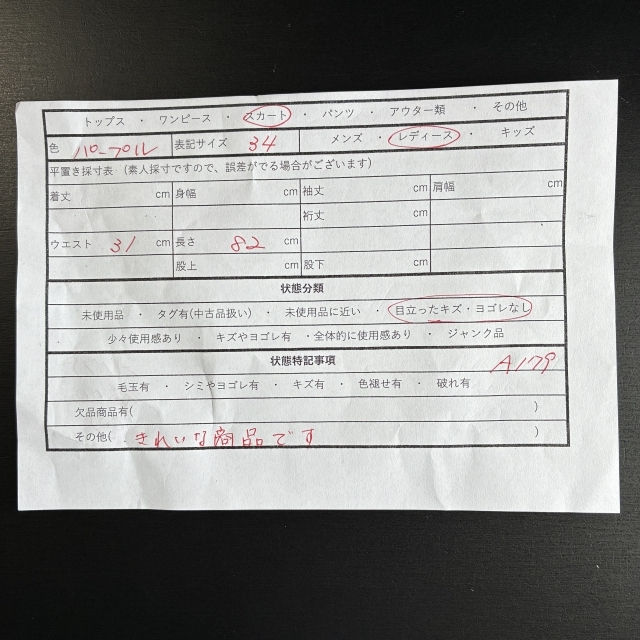 トップス ・ ワンピース ・ スカート ・ パンツ ・ アウター類 ・ その他
色 パープル 表記サイズ 34 メンズ ・ レディース ・ キッズ
平置き採寸表（素人採寸ですので、誤差がでる場合がございます）
着丈 cm 身幅 cm 袖丈 cm 肩幅 cm
裄丈 cm
ウエスト 31 cm 長さ 82 cm
股上 cm 股下 cm
状態分類
未使用品 ・ タグ有(中古品扱い) ・ 未使用品に近い ・ 目立ったキズ・ヨゴレなし
・ 少々使用感あり ・ キズやヨゴレ有 ・全体的に使用感あり ・ ジャンク品
状態特記事項 A179
毛玉有 ・ シミやヨゴレ有 ・ キズ有 ・ 色褪せ有 ・ 破れ有
欠品商品有( )
その他( きれいな商品です )